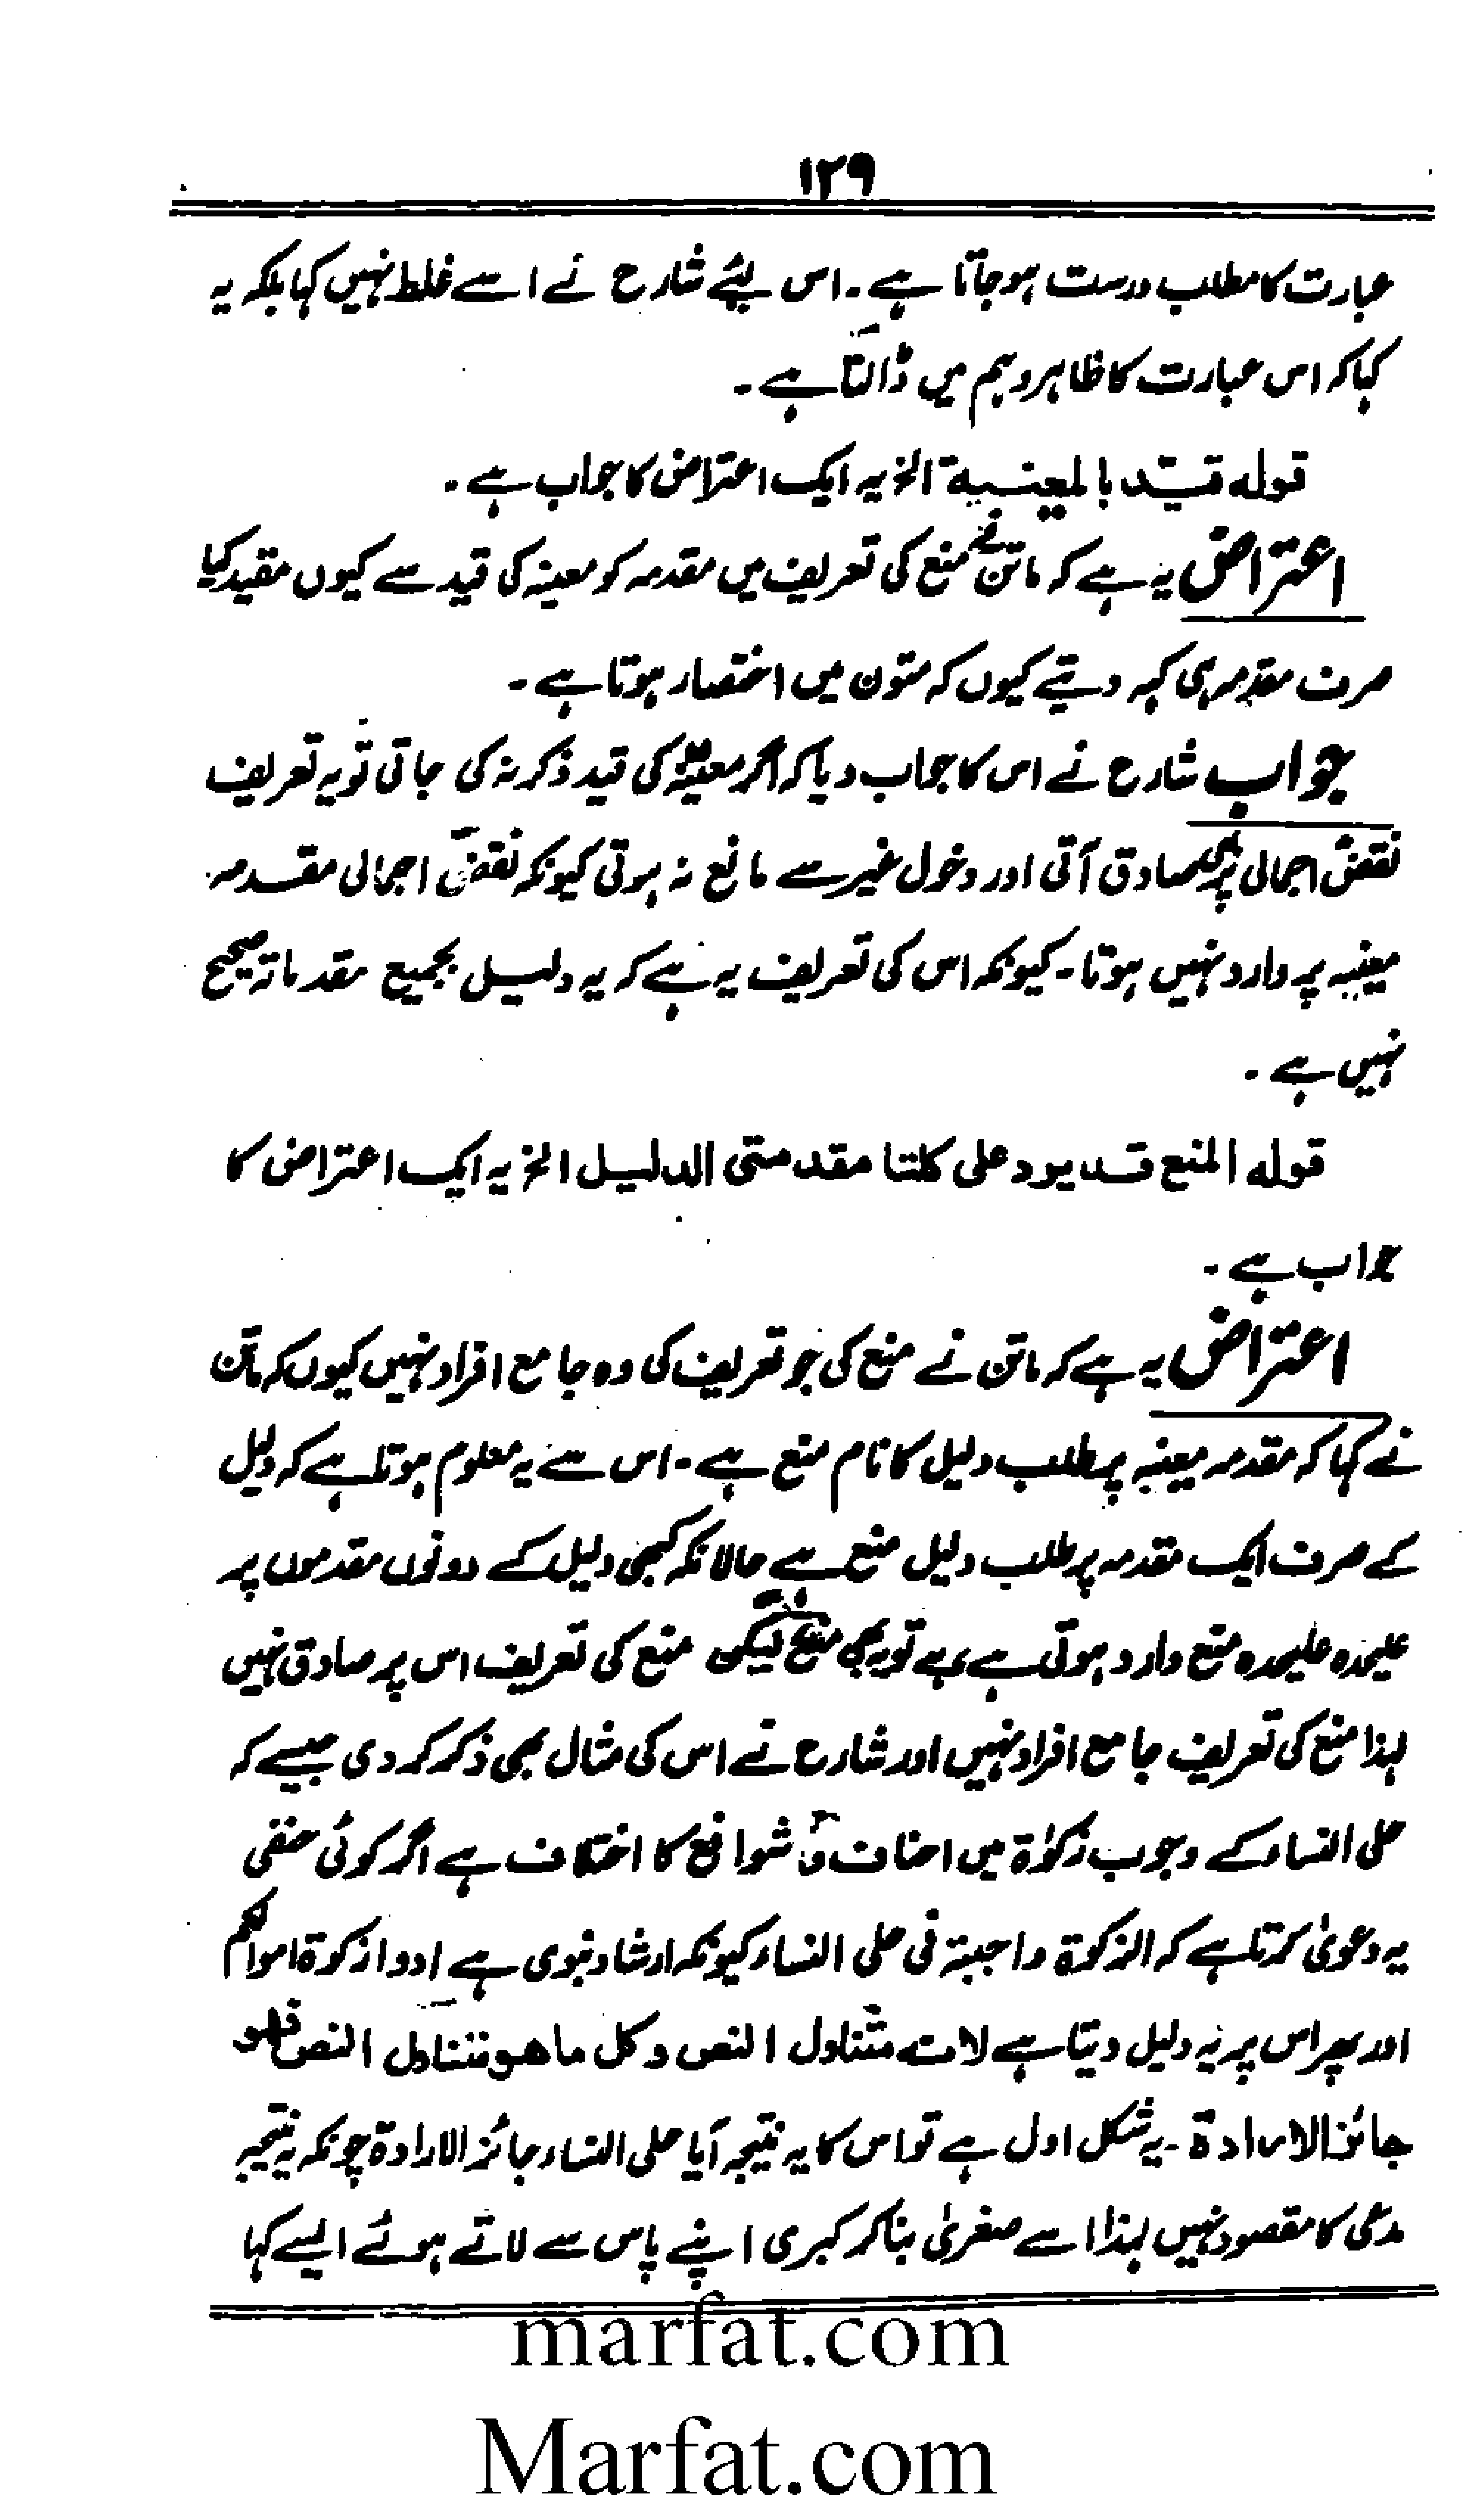 ۱۲۹
عبارت کا مطلب درست ہوجاتا ہے۔ اس لئے شارح نے اسے غلط نہیں کہا بلکہ یہ
کہا کہ اس عبارت کا ظاہر وہم میں ڈالتا ہے۔
قولہ قید بالمعینیۃ الخ یہ ایک اعتراض کا جواب ہے۔
اعتراض یہ ہے کہ ماتن نے منع کی تعریف میں مقدمہ کو معینہ کی قید سے کیوں مقید کیا
صرف مقدمہ ہی کہہ دیتے کیوں کہ متون میں اختصار ہوتا ہے۔
جواب شارح نے اس کا جواب دیا کہ اگر معینہ کی قید ذکر نہ کی جاتی تو یہ تعریف
نقض اجمالی پر بھی صادق آتی اور دخول غیر سے مانع نہ ہوتی کیونکہ نقض اجمالی مقدمہ
معینہ پر وارد نہیں ہوتا۔ کیونکہ اس کی تعریف یہ ہے کہ یہ دلیل بجمیع مقدماتہ صحیح
نہیں ہے۔
قولہ المنع قد یرد علی کلتا مقدمتی الدلیل الخ یہ ایک اعتراض کا
جواب ہے۔
اعتراض یہ ہے کہ ماتن نے منع کی جو تعریف کی وہ جامع افراد نہیں کیوں کہ ماتن
نے کہا کہ مقدمہ معینہ پر طلب دلیل کا نام منع ہے۔ اس سے یہ معلوم ہوتا ہے کہ دلیل
کے صرف ایک مقدمہ پر طلب دلیل منع ہے حالانکہ کبھی دلیل کے دونوں مقدموں پر
علیحدہ علیحدہ منع وارد ہوتی ہے تو یہ بھی منع ہے لیکن منع کی تعریف اس پر صادق نہیں
لہذا منع کی تعریف جامع افراد نہیں اور شارح نے اس کی مثال بھی ذکر کر دی جیسے کہ
حلی النساء کے وجوب زکوٰۃ میں احناف و شوافع کا اختلاف ہے اگر کوئی حنفی
یہ دعویٰ کرتا ہے کہ الزکوۃ واجبۃ فی حلی النساء کیونکہ ارشاد نبوی ہے ادوا زکوۃ اموالکم
اور پھر اس پر یہ دلیل دیتا ہے لانہ متناول النص وکل ما ھو متناول النص فھو
جائز الارادۃ۔ یہ شکل اول ہے تو اس کا یہ نتیجہ آیا حلی النساء جائز الارادۃ چونکہ یہ نتیجہ
مدعی کا مقصود نہیں لہذا اسے صغریٰ بنا کر کبری اپنے پاس سے لاتے ہوئے ایسے کہا
marfat.com
Marfat.com